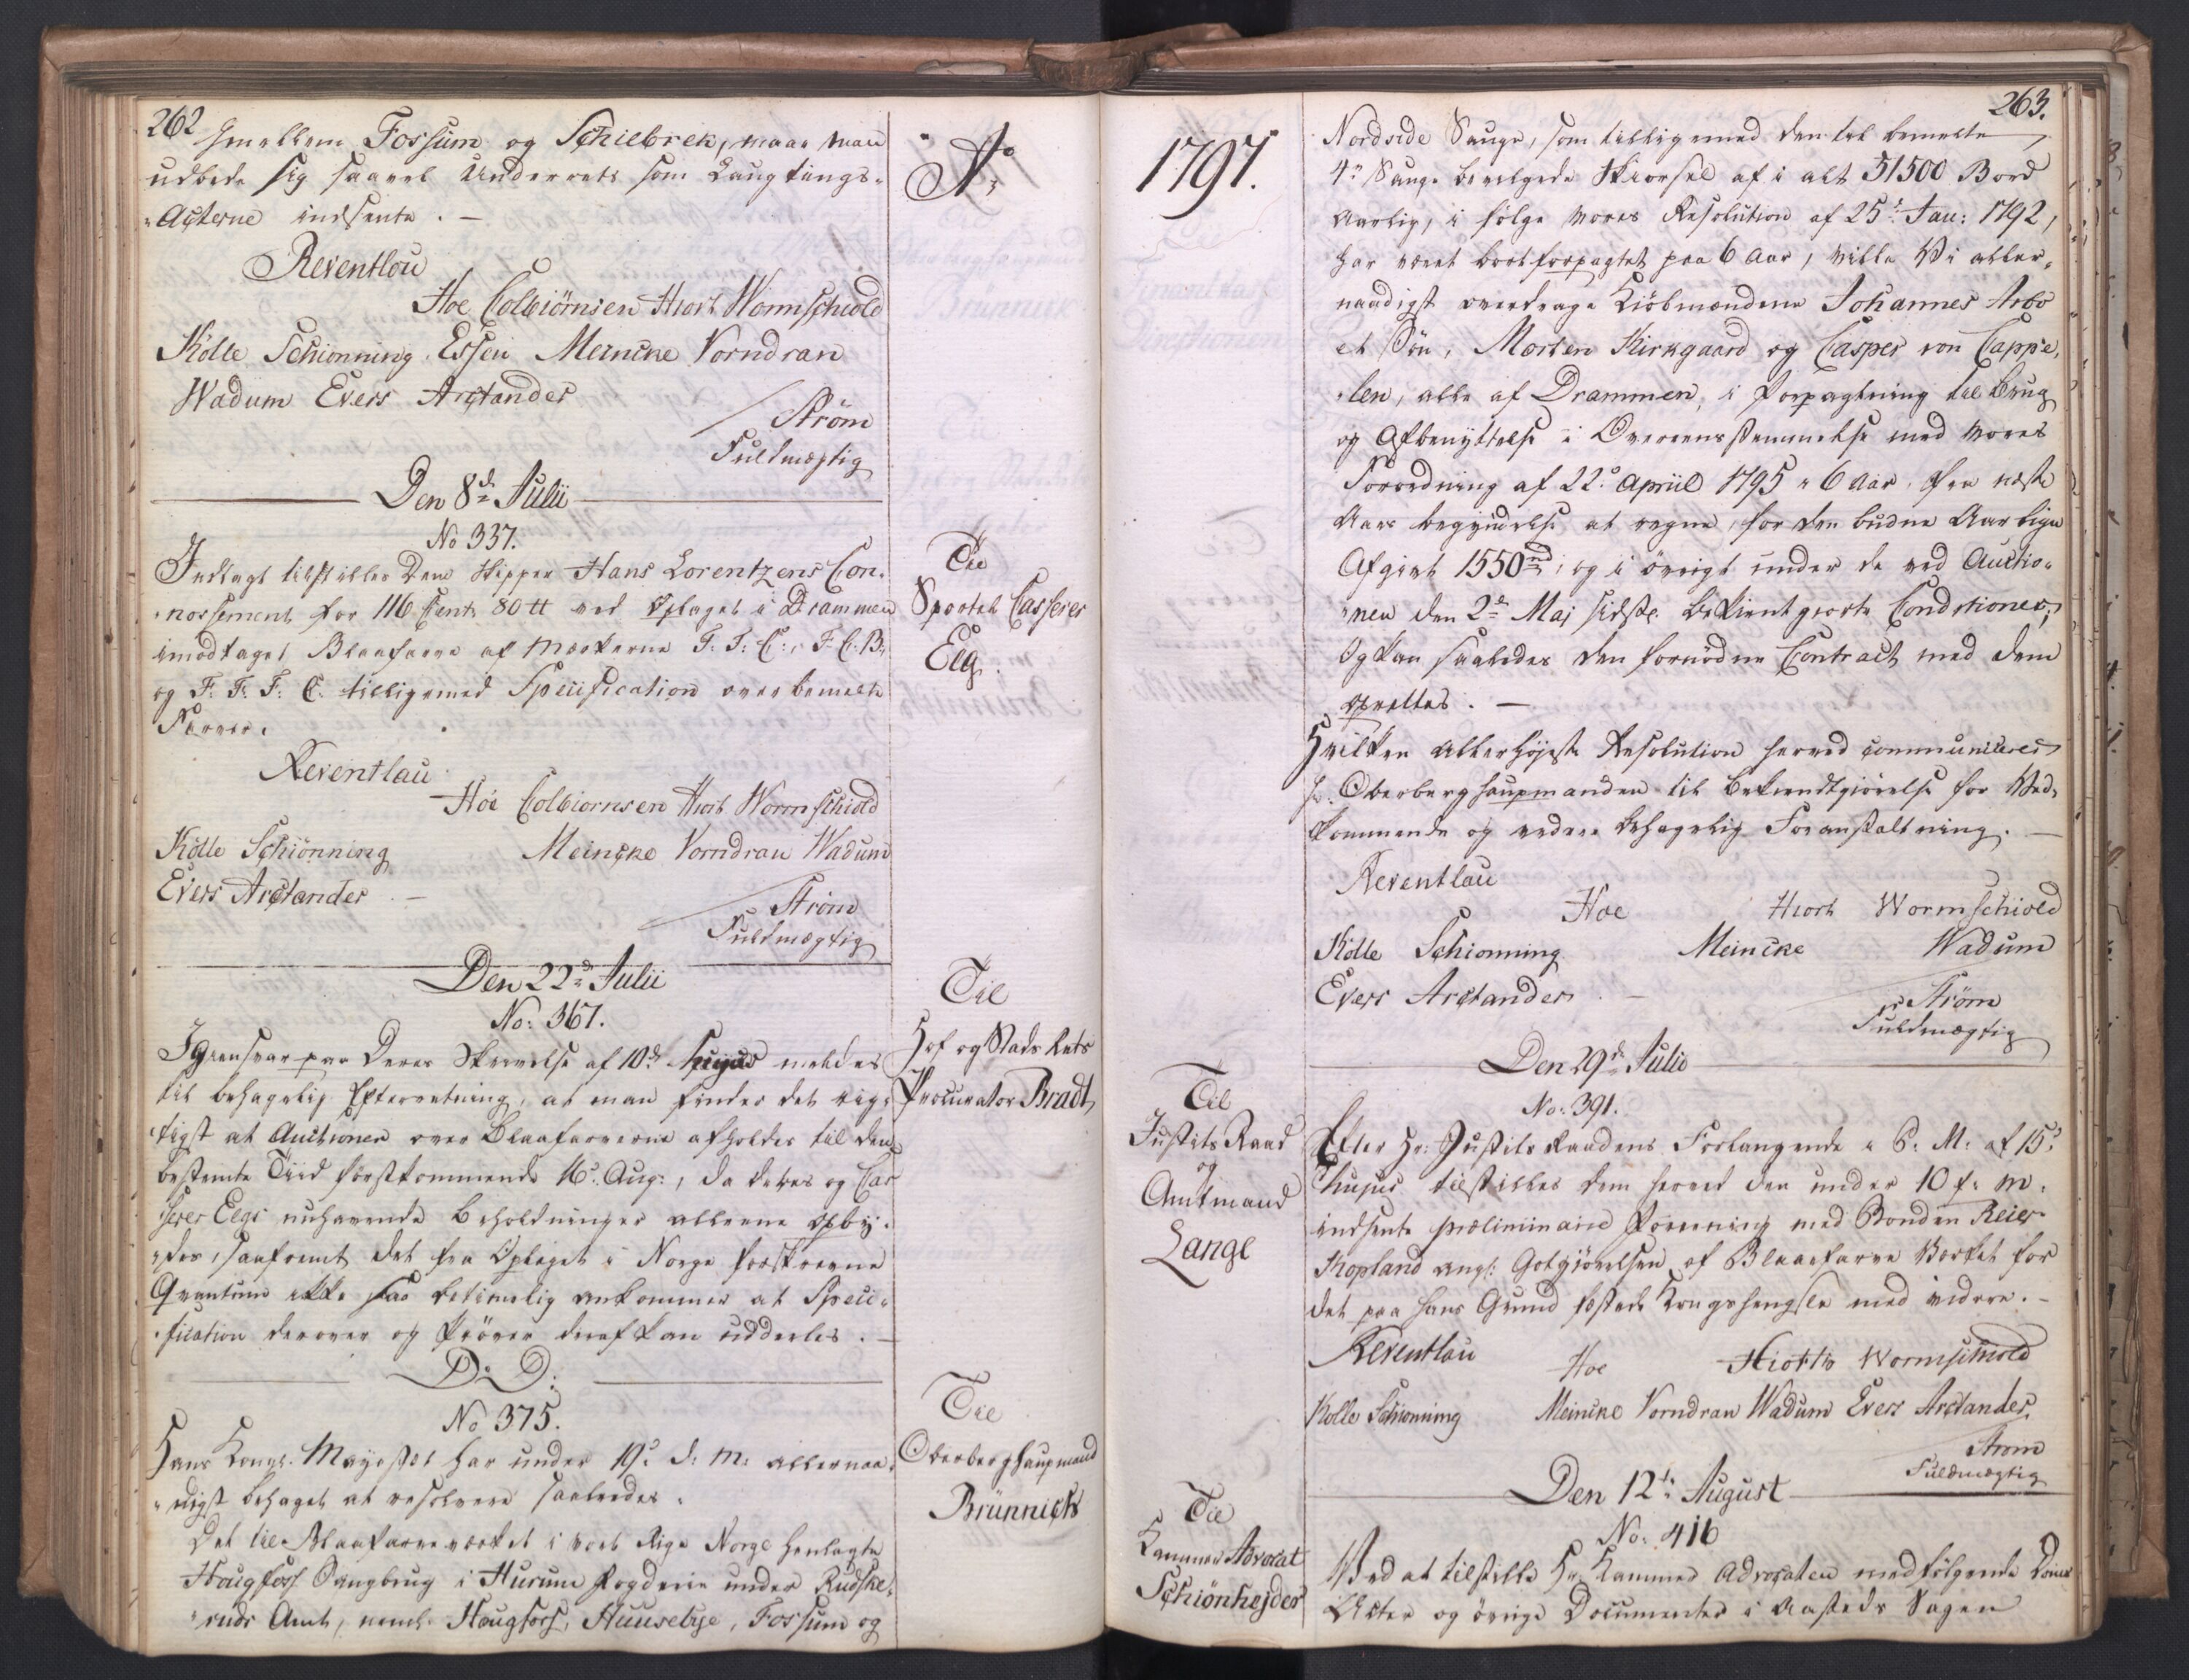 262
imellem Fossum og Schiebrek, maae man
udbede sig saavel Underrets som Laugtings-
-Acterne indsente. —
Reventlou
Hoe Colbiörnsen Hiort Wormschiold
Kölle Schionning Essen Meincke Vorndran
Wadum Evers Arctander
Ström
Fuldmægtig
Den 8de Julii
No 337.
Indlagt tilstilles Dem Skipper Hans Lorentzens Con-
-nossement for 116 Cent 80 tt ved Oplaget i Drammen
imodtaget Blaafarve af Mærkerne F: F: C:, F: C: B:
og F: F: F: C. tilligemed Specification over bemelte
Farver.
Reventlau
Hoe Colbiornsen Hiort Wormschiold
Kölle Schiönning Meincke Vorndran Wadum
Evers Arctander —
Ström
Fuldmægtig
Den 22de Julii
No: 367.
I giensvar paa Deres Skrivelse af 10de hujus meldes
til behagelig Efterretning, at man finder det rig-
-tigst at Auctionen over Blaafarverne afholdes til den
bestemte Tiid förstkommende 16de Aug:, da deres og Cas
serer Elgs nuhavende Beholdninger alleene opby-
-des, saafremt det fra Oplaget i Norge forskrevne
Qvantum ikke saa betimelig ankommer at Speci-
-fication derover og Pröver deraf kan uddeeles. —
D: D:
No 375.
Hans Kongl. Mayestet har under 19de d: M: allernaa-
-digst behaget at resolvere saaledes:
Det til Blaafarveværket i vort Rige Norge henlagte
Hougfoss Saugbrug i Hurum Fogderie under Budske-
-ruds Amt, neml: Hougfoss, Huusebye, Fossum og
Ao
Til
Sportel Casserer
Elg.
Til
Hof og Stads Rets
Procurator Bradt
Til
Oberberghauptmand
Brünnich
1797.
Til
Justits Raad
og
Amtmand
Lange
Til
Kammer Advocat
Schiönheyder
263.
Nordside Sauge, som tilligemed den til bemelte
4re Sauge bevilgede Skiorsel af i alt 31500 Bord
Aarlig, i fölge Vores Resolution af 25de Jan: 1792,
har været bortforpagtet paa 6 Aar, ville Vi aller-
naadigst overdrage Kiöbmændene Johannes Arbo
et Sön, Morten Kirkgaard og Casper von Cappe-
-len, alle af Drammen, i Forpagtning til Brug
og Afbenyttelse i Overeensstemmelse med Vores
Forordning af 22de Apriil 1795 i 6 Aar fra næste
Aars begyndelse at regne, for den budne Aarlige
Afgivt 1550 rd; og i övrigt under de ved Auctio-
-nen den 2de Maj sidstl. bekientgiorte Conditioner;
Og kan saaledes den fornödne Contract med dem
oprettes. —
Hvilken allerhöjeste Resolution herved communiceres
Hr. Oberberghauptmanden til Bekiendtgiörelse for Ved-
kommende og videre behagelig Foranstaltning. —
Reventlau
Hoe Hiort Wormschiold
Kölle Schionning Meincke Wadum
Evers Arctander —
Ström
Fuldmægtig
Den 29de Julii
No: 391.
Efter Hr: Justits Raadens Forlangende i P: M: af 15de
hujus tilstilles dem herved den under 10 f: M:
indsente præliminaire Forening med Bonden Reier
Kopland angl: Godtgiörelsen af Blaaefarve Værket for
det paa hans Grund fæstede Kongshengsle med videre. —
Reventlau
Hoe Hiorth Wormschiold
Kolle Schionning Meincke Vorndran Wadum Evers Arctander
Strom
Fuldmægtig
Den 12te August
No: 416
Ved at tilstille Hr. Kammer Advocaten medfölgende Domes
Acter og övrige Documenter i Aasteds Sagen